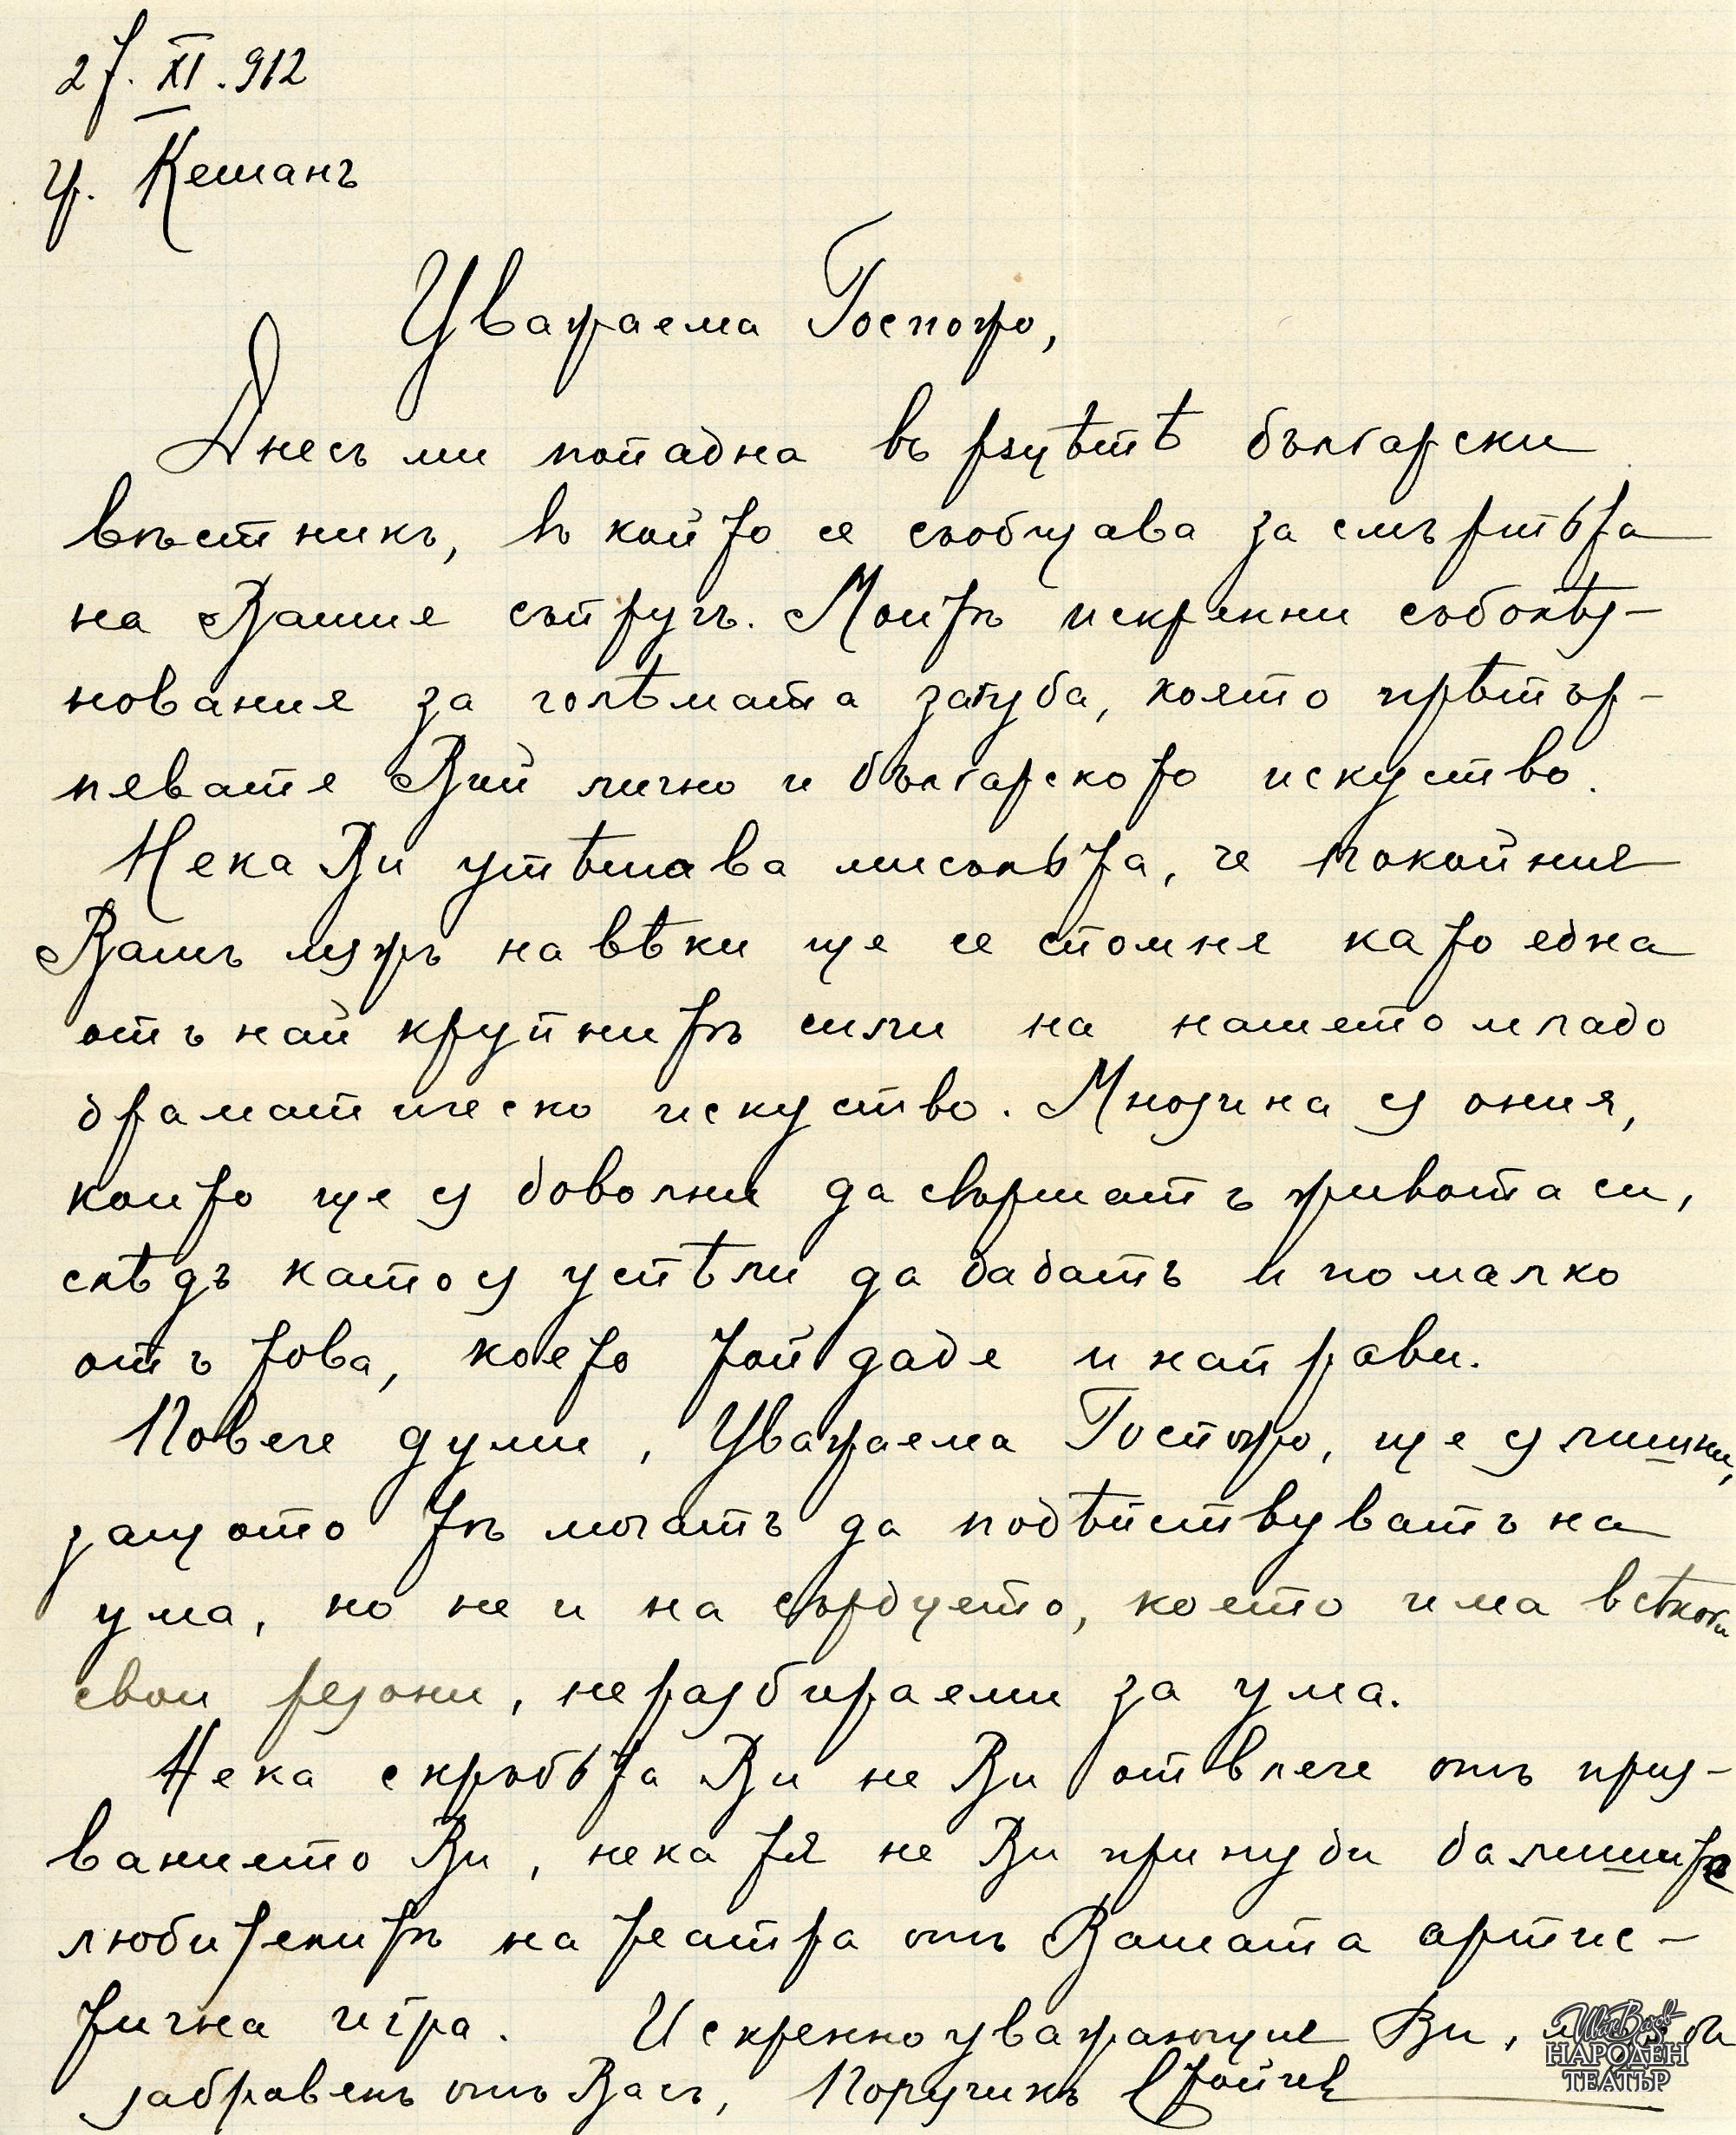 27. XI. 912
гр. Кешанъ
Уважаема Госпожо,
Днесъ ми попадна въ рѫцѣтѣ български
вѣстникъ, въ който се съобщава за смъртьта
на Вашия съпругъ. Моитѣ искренни съболѣз-
нования за голѣмата загуба, която прѣтър-
пявате Вий лично и българското искуство.
Нека Ви утѣшава мисъльта, че покойния
Вашъ мѫжъ навѣки ще се спомня като една
отъ най крупнитѣ сили на нашето младо
драматическо искуство. Мнозина сѫ ония,
които ще сѫ доволни да свършатъ живота си,
слѣдъ като сѫ успѣли да дадатъ и помалко
отъ това, което той даде и направи.
Повече думи, Уважаема Госпожо, ще сѫ лишни,
защото тѣ могатъ да подѣйствуватъ на
ума, но не и на сърдцето, което има всѣкоги
свои резони, неразбираеми за ума.
Нека скръбьта Ви не Ви отвлече отъ приз-
ванието Ви, нека тя не Ви принуди да лишите
любителитѣ на театра отъ Вашата артис-
тична игра. Искренно уважающия Ви,
забравенъ отъ Васъ, Поручикъ Стойчев
Иван Вазов
НАРОДЕН
ТЕАТЪР